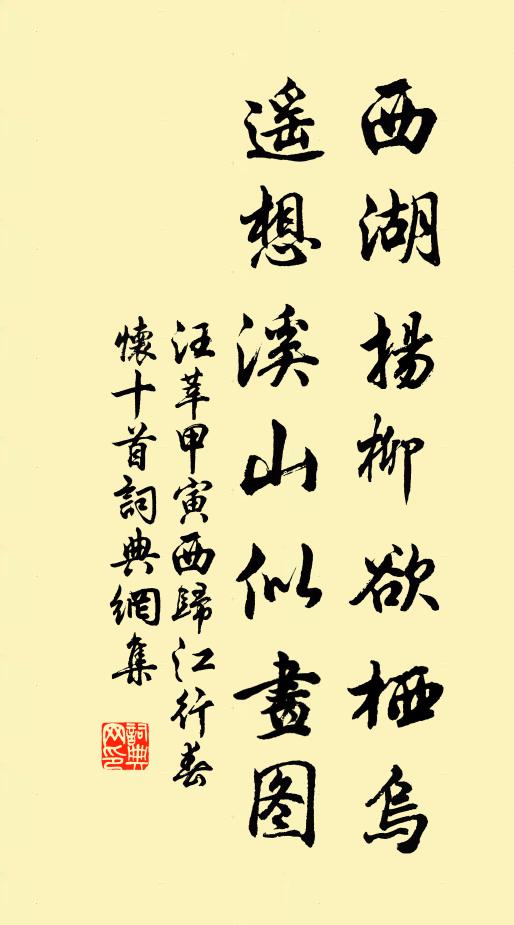 西湖揚柳欲栖烏
遥想溪山似畫图
汪莘甲寅西歸江行春
懷十首詞典網集
詞典網印